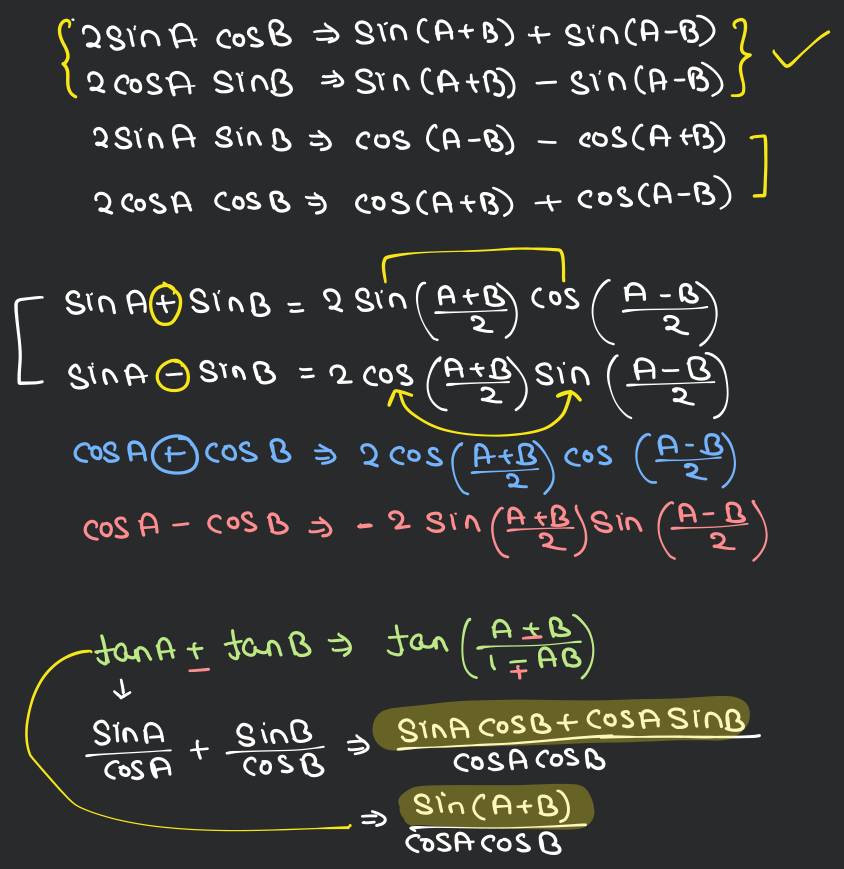 2sinA cosB ⇒ sin(A+B) + sin(A-B)
2cosA sinB ⇒ sin(A+B) - sin(A-B)
2sinA sinB ⇒ cos(A-B) - cos(A+B)
2cosA cosB ⇒ cos(A+B) + cos(A-B)
sinA + sinB = 2 sin((A+B)/2) cos((A-B)/2)
sinA - sinB = 2 cos((A+B)/2) sin((A-B)/2)
cosA + cosB ⇒ 2 cos((A+B)/2) cos((A-B)/2)
cosA - cosB ⇒ -2 sin((A+B)/2) sin((A-B)/2)
tanA ± tanB ⇒ tan((A±B)/(1∓AB))
↓
sinA/cosA + sinB/cosB ⇒ (sinA cosB + cosA sinB)/(cosA cosB)
⇒ sin(A+B)/(cosA cosB)